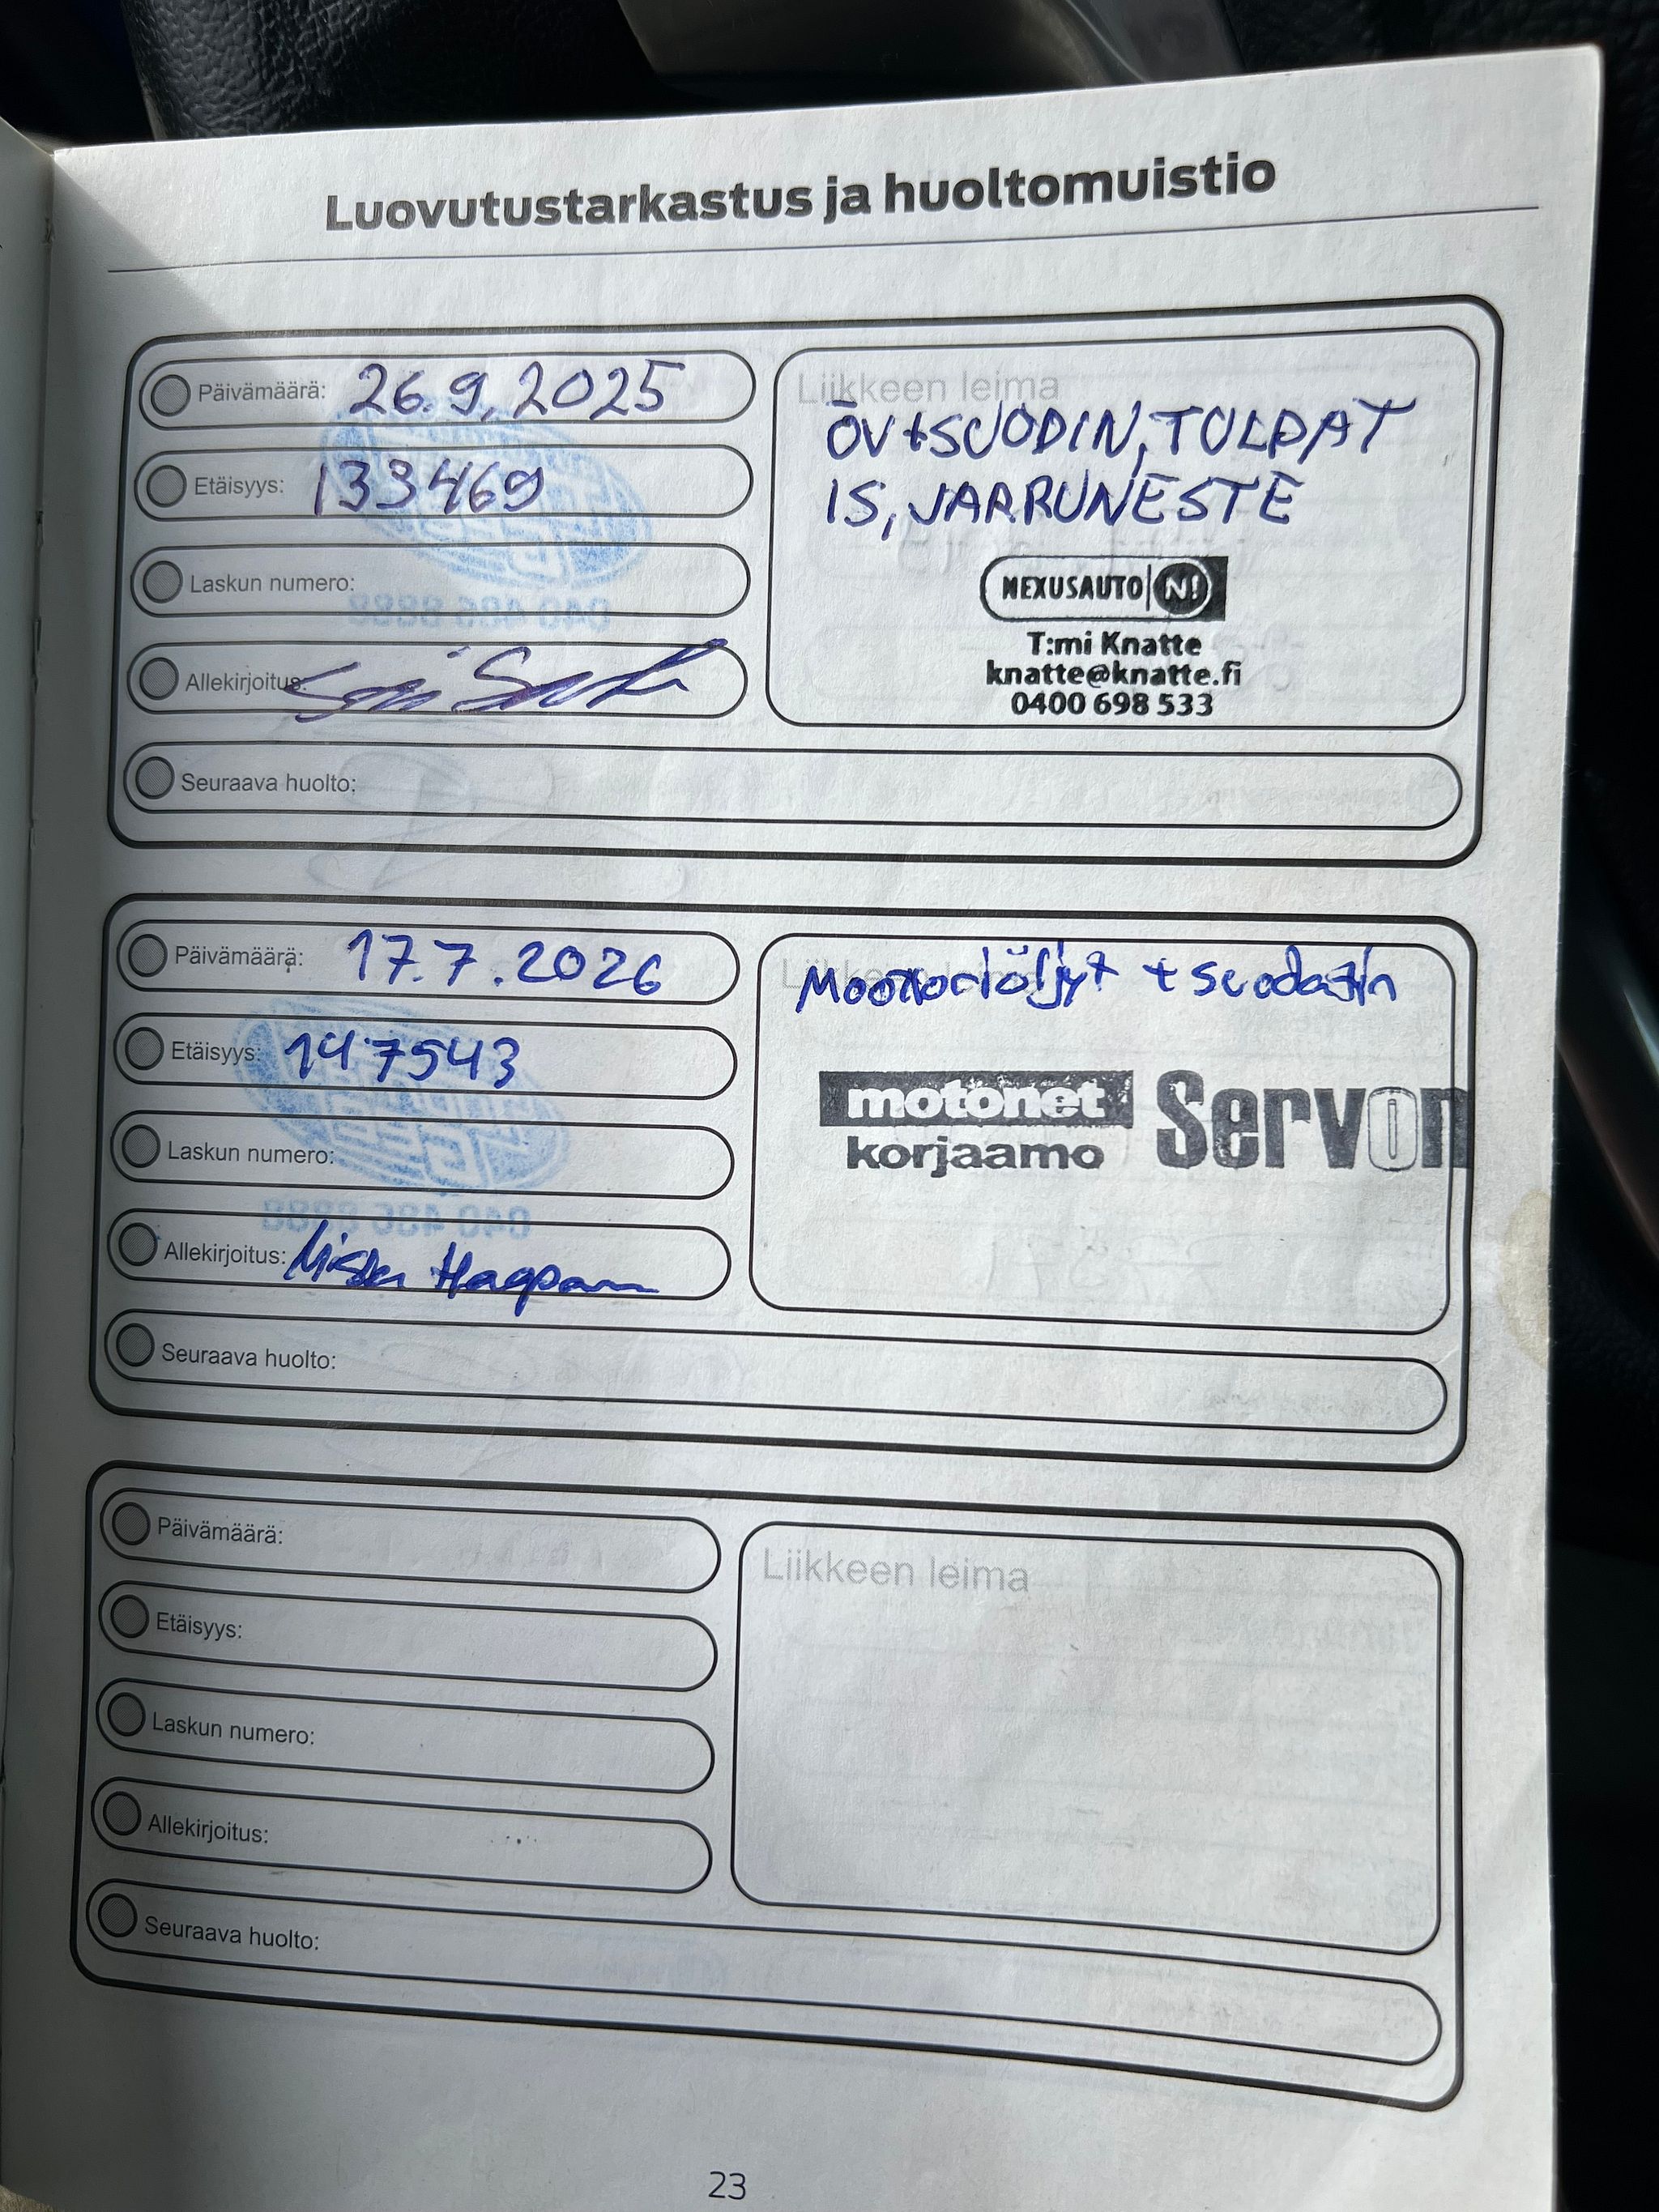 Luovutustarkastus ja huoltomuistio
Päivämäärä: 26.9.2025
Etäisyys: 133469
Laskun numero:
Allekirjoitus:
Seuraava huolto:
Liikkeen leima
ÖV+SUODIN, TULPAT
IS, JARRUNESTE
NEXUSAUTO N!
T:mi Knatte
knatte@knatte.fi
0400 698 533
Päivämäärä: 17.7.2026
Etäisyys: 147543
Laskun numero:
Allekirjoitus:
Seuraava huolto:
Liikkeen leima
+ suodatin
motonet
korjaamo
Servon
Päivämäärä:
Etäisyys:
Laskun numero:
Allekirjoitus:
Seuraava huolto:
Liikkeen leima
23